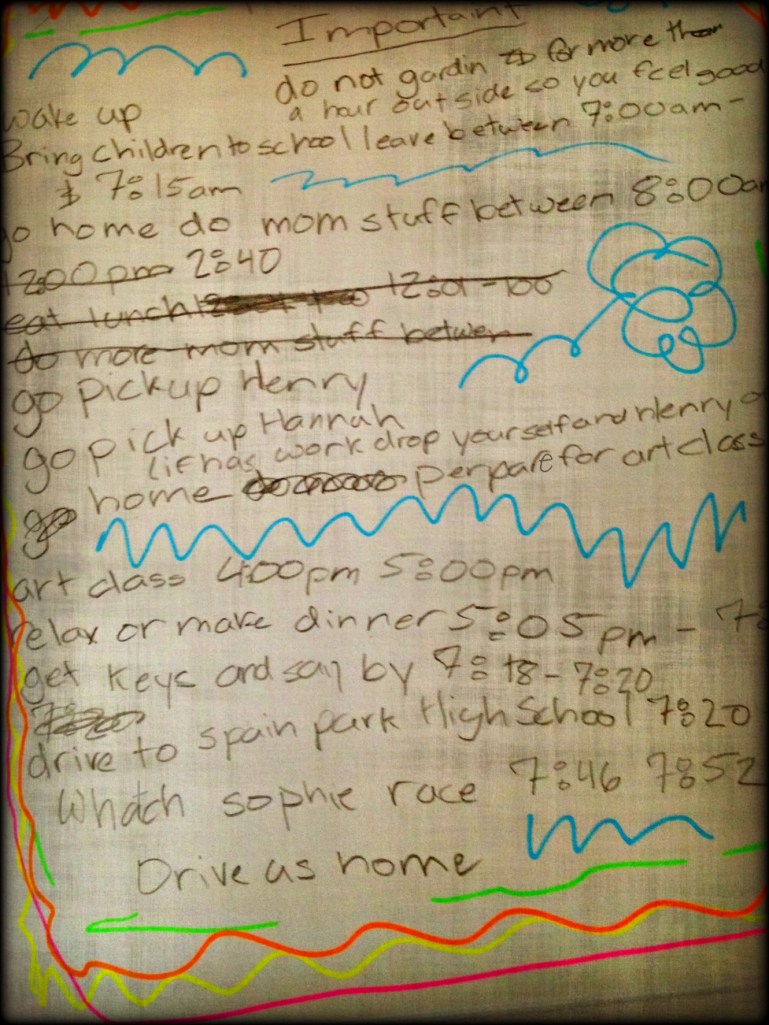 Important
do not gardin for more than
a hour outside so you feel good
wake up
Bring children to school leave between 7:00am -
7:15am
go home do mom stuff between 8:00am
12:00pm 2:40
eat lunch 12:01 - 100
do more mom stuff betwen
go pickup Henry
go pick up Hannah
(if has work drop yourself and Henry
go home perpare for art class
art class 4:00pm 5:00pm
relax or make dinner 5:05pm - 7:
get keys and say by 7:18 - 7:20
drive to spain park High School 7:20
Whatch sophie race 7:46 7:52
Drive us home